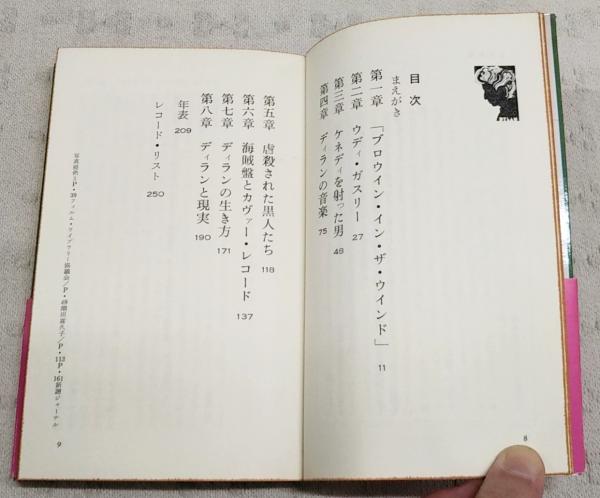 目次
まえがき
第一章 「ブロウイン・イン・ザ・ウインド」 11
第二章 ウディ・ガスリー 27
第三章 ケネディを射った男 48
第四章 ディランの音楽 75
8
第五章 虐殺された黒人たち 118
第六章 海賊盤とカヴァー・レコード 137
第七章 ディランの生き方 171
第八章 ディランと現実 190
年表 209
レコード・リスト 250
写真提供=P・39フィルム・ライブラリー協議会/P・49増田喜久子/P・113P・161新譜ジャーナル
9